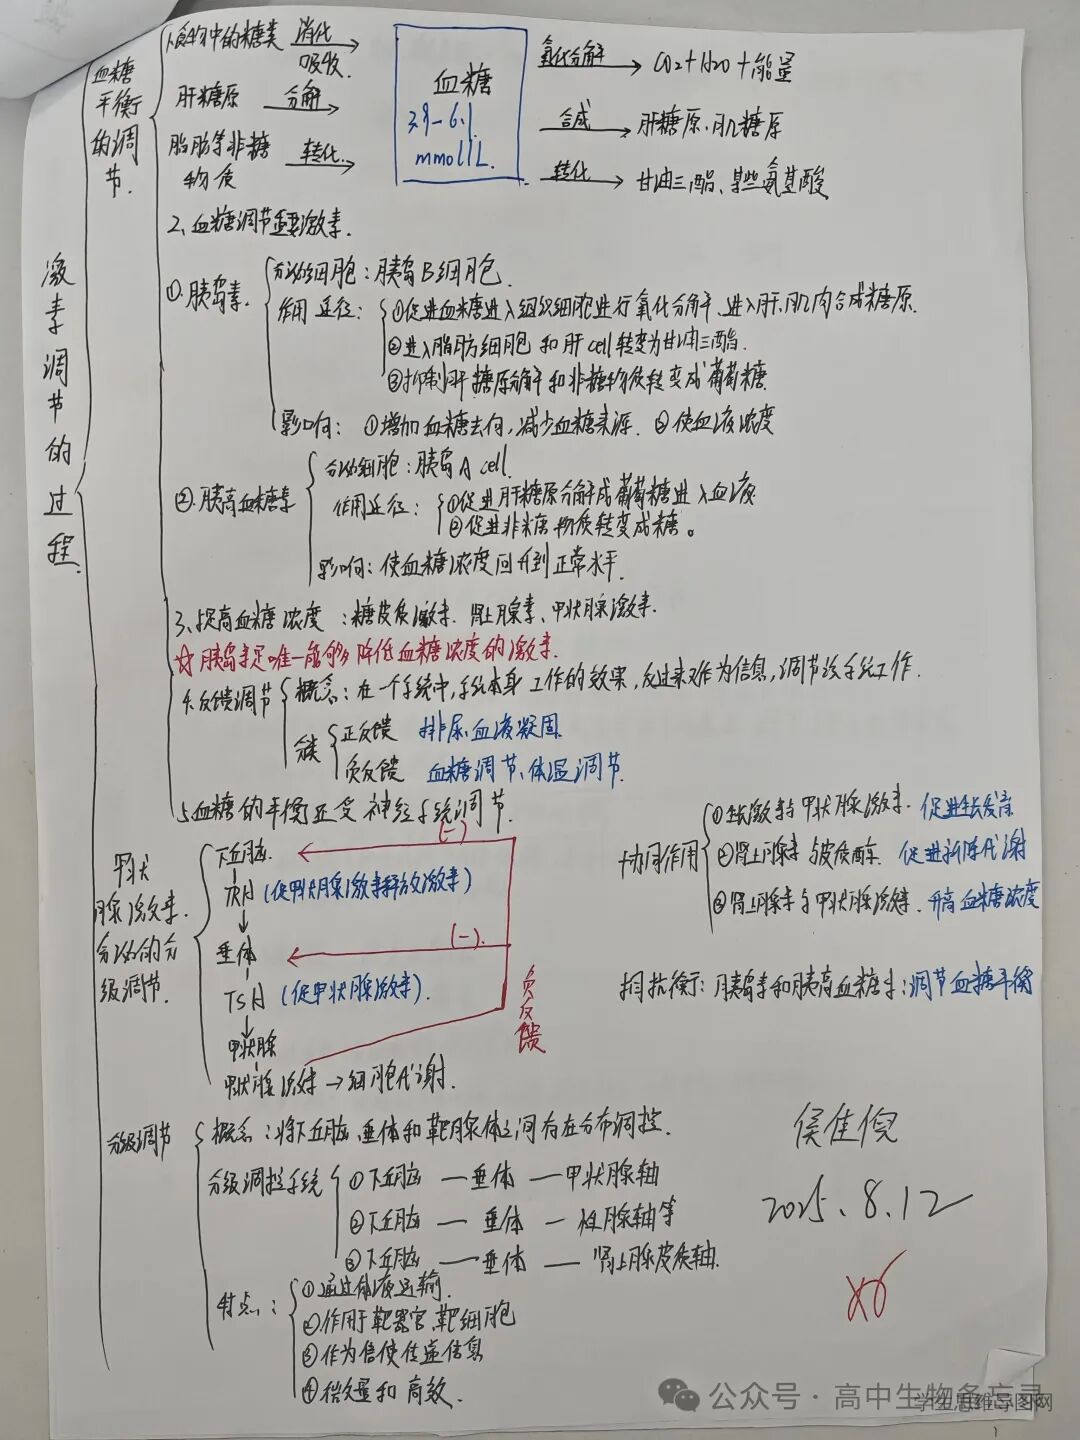 激素调节的过程
血糖平衡的调节.
1.食物中的糖类 消化 吸收
肝糖原 分解
脂肪等非糖物质 转化
血糖
3.9-6.1
mmol/L.
氧化分解 CO2+H2O+能量
合成 肝糖原.肌糖原
转化 甘油三酯、某些氨基酸
2、血糖调节重要激素.
①.胰岛素.
分泌细胞:胰岛B细胞
作用途径:
①促进血糖进入组织细胞进行氧化分解、进入肝.肌肉合成糖原.
②进入脂肪细胞和肝cell转变为甘油三酯.
③抑制肝糖原分解和非糖物质转变成葡萄糖.
影响:①增加血糖去向,减少血糖来源.②使血液浓度
②.胰高血糖素
分泌细胞:胰岛A cell.
作用途径:
①促进肝糖原分解成葡萄糖进入血液
②促进非糖物质转变成糖。
影响:使血糖浓度回升到正常水平.
3、提高血糖浓度:糖皮质激素.肾上腺素、甲状腺激素.
☆胰岛素是唯一能够降低血糖浓度的激素.
4.反馈调节
概念:在一个系统中,系统本身工作的效果,反过来又作为信息,调节该系统工作.
分类
正反馈 排尿、血液凝固
负反馈 血糖调节、体温调节.
5.血糖的平衡还受神经系统调节.
甲状腺激素.分泌的分级调节.
下丘脑. (-)
TRH(促甲状腺激素释放激素)
垂体 (-).
TSH(促甲状腺激素).
甲状腺
甲状腺激素→细胞代谢.
负反馈
协同作用
①生长激素与甲状腺激素.促进生长发育
②肾上腺素与皮质醇 促进新陈代谢
③肾上腺素与甲状腺激素.升高血糖浓度
相抗衡:胰岛素和胰高血糖素:调节血糖平衡
分级调节
概念:将下丘脑、垂体和靶腺体之间存在分布调控.
分级调控系统
①下丘脑—垂体—甲状腺轴
②下丘脑—垂体—性腺轴等
③下丘脑—垂体—肾上腺皮质轴.
特点:
①通过体液运输.
②作用于靶器官、靶细胞
③作为信使传递信息
④微量和高效.
侯佳倪
2025.8.12
公众号·高中生物备忘录
学生思维导图网